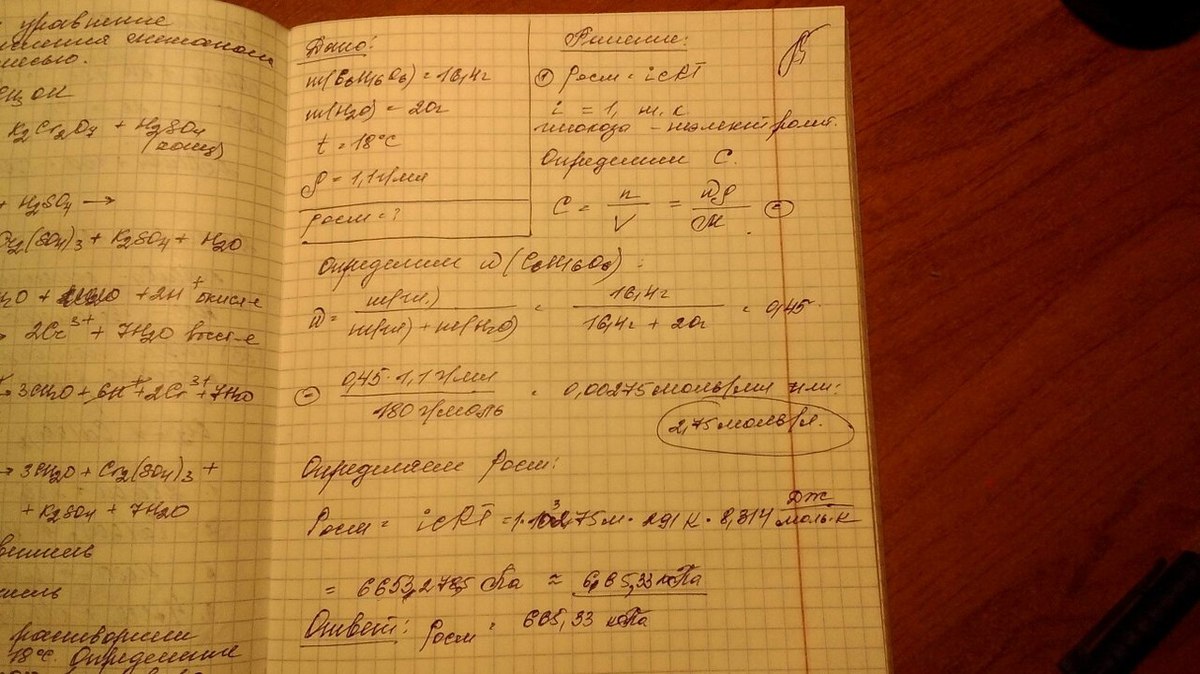 уравнение
K₂Cr₂O₇ + H₂SO₄
(конц)
+ H₂SO₄ →
Cr₂(SO₄)₃ + K₂SO₄ + H₂O
+ 2H⁺ окисл-е
→ 2Cr³⁺ + 7H₂O восст-е
→ 3CH₂O + 6H⁺ + 2Cr³⁺ + 7H₂O
→ 3CH₂O + Cr₂(SO₄)₃ +
+ K₂SO₄ + 7H₂O
растворили
18°C. Определите
Дано:
m(C₆H₁₆O₆) = 16,4г
m(H₂O) = 20г
t = 18°C
ρ = 1,1 г/мл
Pосм = ?
Решение:
① Pосм = icRT
i = 1, т.к.
глюкоза – неэлектролит.
Определим C.
C = n/V = ωρ/M =
Определим ω (C₆H₁₆O₆):
ω = m(гл.)/(m(гл) + m(H₂O)) = 16,4г/(16,4г + 20г) = 0,45
= 0,45 · 1,1 г/мл / 180 г/моль = 0,00275 моль/мл или:
2,75 моль/л.
Определяем Pосм:
Pосм = icRT = 1 · 10³ · 2,75 м · 291 К · 8,314 Дж/моль·К
= 6653,2785 Па ≈ 6,65,33 кПа
Ответ: Pосм = 665,33 кПа